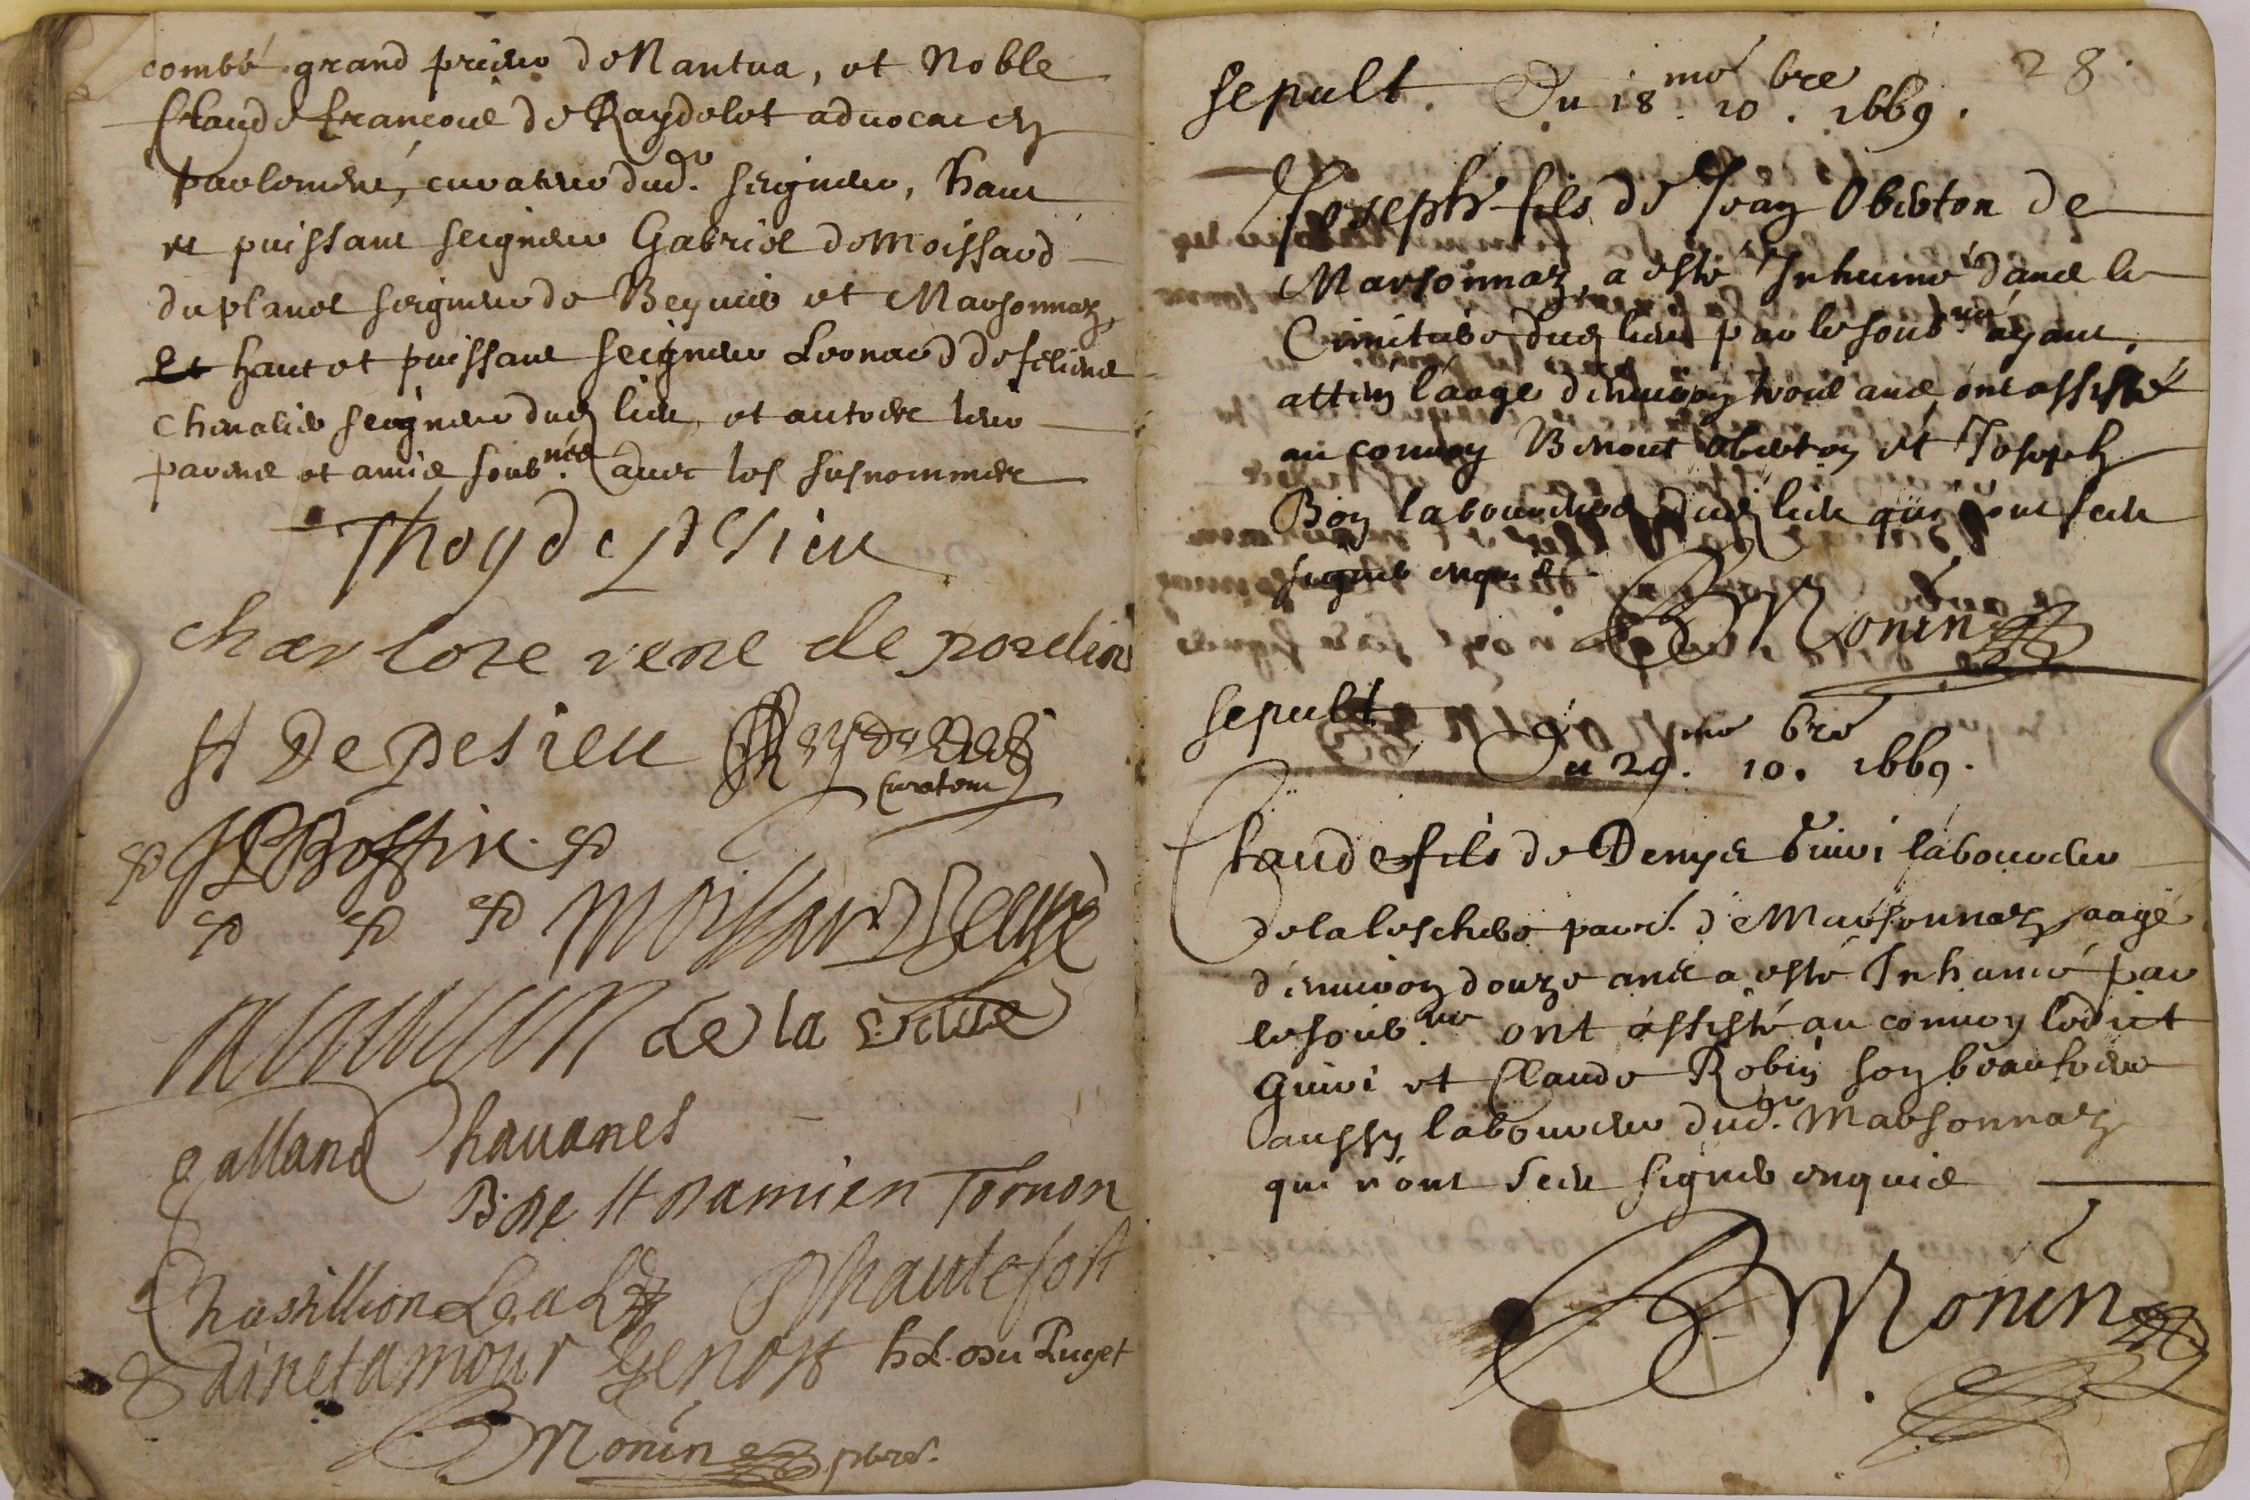 combé grand prieur de Nantua, et Noble
Claude francois de Raydelet advocat en
parlement, curateur dud.r seigneur, haut
et puissant seigneur Gabriel de Moissard
du planet seigneur de Beyvier et Marsonnaz,
Et haut et puissant seigneur Leonard de feliene
chevalier seigneur dud lieu et autres leur
parens et amis soub.nés avec les susnommes
Thoy de pSieu
charlote rene de
St De pesieu Reydellet
Curateur
Boffin
Moissard
de la
galland Chavanes
B. De St Damien Tornon
Chastillion hautefort
Sainctamour Genost h d. du Puget
B Monin pbre.
28.
sepult. Du 18.me 10.bre 1669.
Joseph fils de Jean Oberton de
Marsonnaz, a esté Inhumé dans le
Cimitiere dud lieu par le soub.né ayant
atteint l'aage d'environ trois ans, ont assisté
au convoy Benoit Oberton et Joseph
Boy laboureurs dud lieu qui n'ont sceu
signer enquis
B Monin
sepult
Du 29.me 10.bre 1669.
Claude fils de Denys Guivi laboureur
de la leschere parr. de Marsonnaz aagé
d'environ douze ans a esté Inhumé par
le soub.né ont assisté au convoy ledict
Guivi et Claude Robin son beaufrere
aussy laboureur dud.r Marsonnaz
qui n'ont sceu signer enquis
B Monin